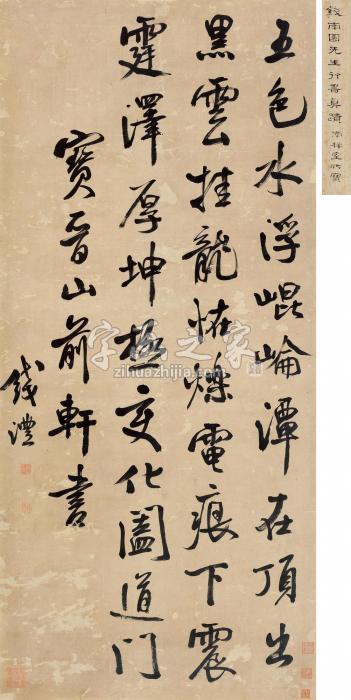 錢南園先生行書真蹟
五色水浮崐崘潭在頂出
黑雲挂龍怪爍電痕下震
霆澤厚坤極变化闔道門
寶晋山前軒書
錢灃
zihuazhijia.com